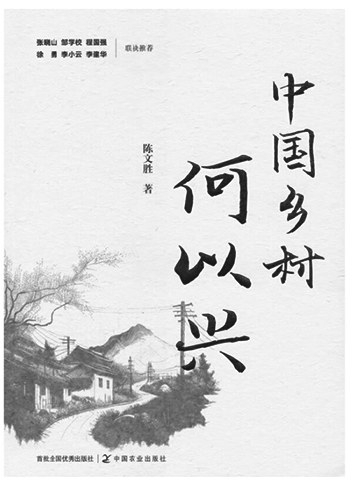 张晓山 邹学校 程国强
徐 勇 李小云 李建华
联袂推荐
中国乡村
何以兴
陈文胜 著
首批全国优秀出版社
中国农业出版社